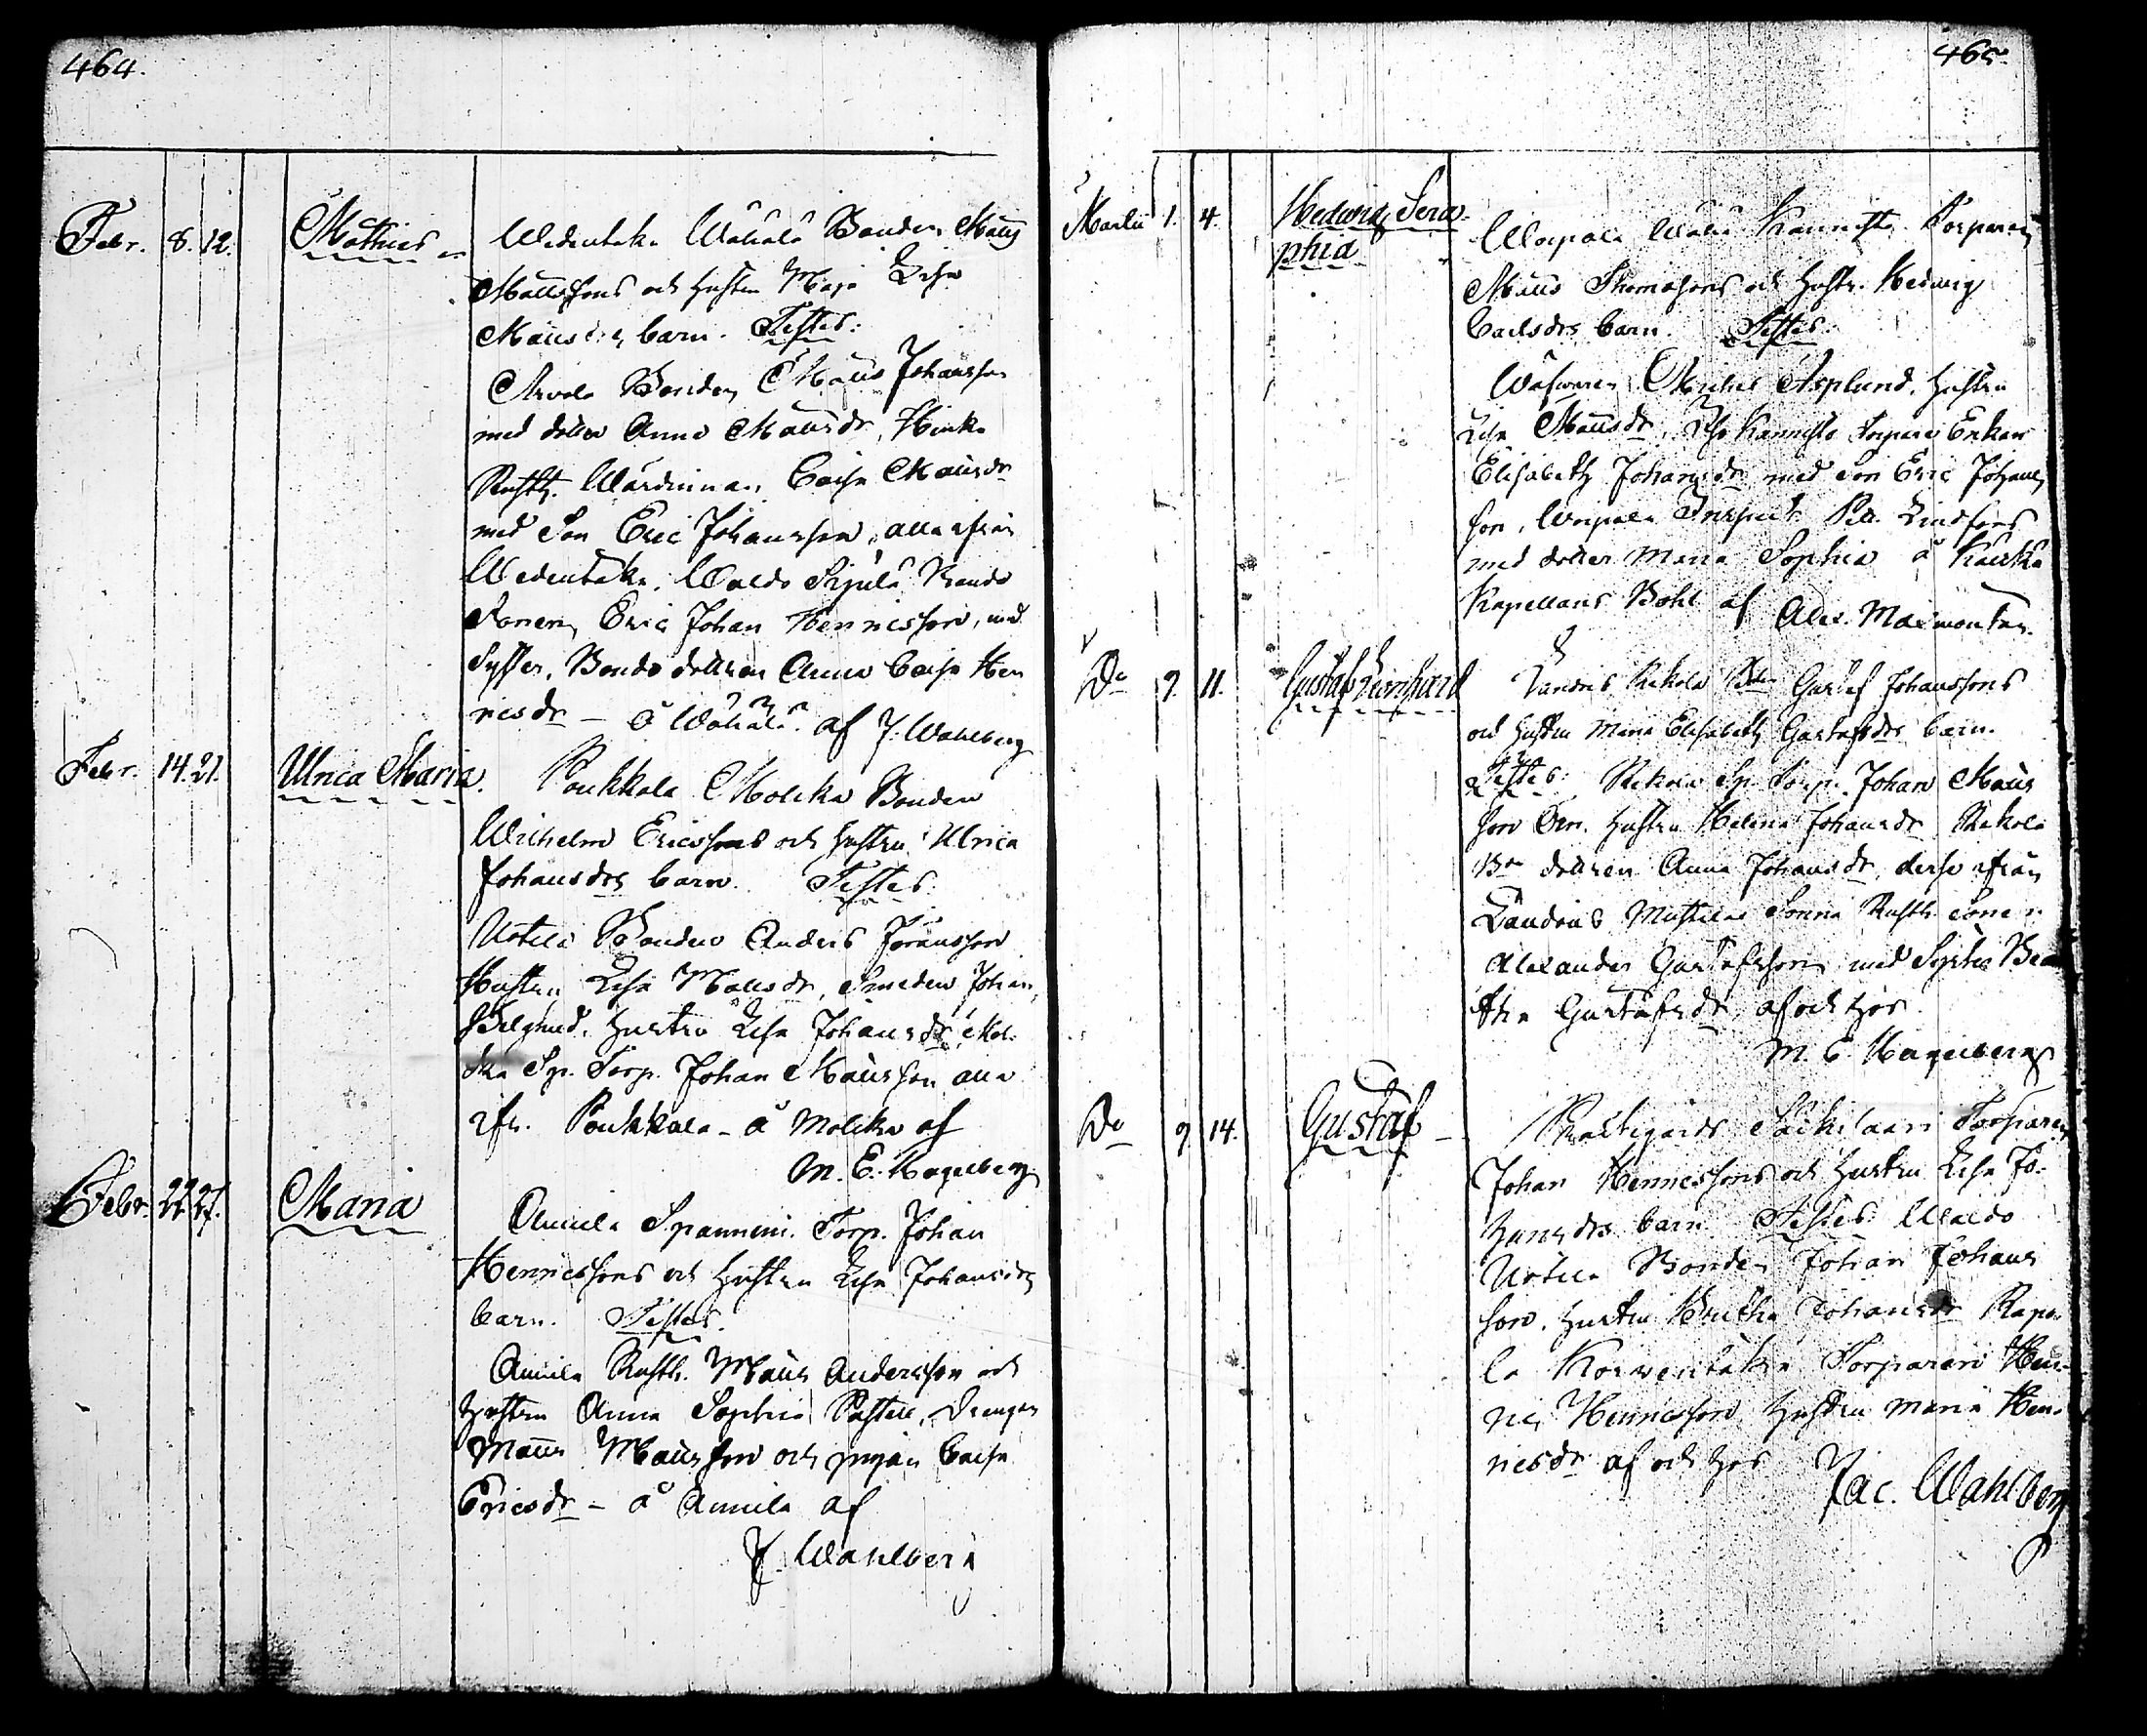 464.
Febr. 8. 12. Mathies Wedentaka Wähälä Bonden Matts
Mattssons och hustru Maja Lisa
Mattsdrs barn. Testes:
Arvela Bonden Matts Johansson
med dotter Anna Mattsdr, Heikk.
Rusth. Wärdinnan Caisa Mattsdr
med Son Eric Johansson, alla ifrån
Wedentaka, Waldo Sipilä Bonde
Sonen, Eric Johan Henricsson, med
Syster, Bonde dottren Anna Caisa Hen
ricsdr – å Wähälä af J. Wahlberg
Febr. 14. 21. Ulrica Maria. Poukkala Molika Bonden
Wilhelm Ericssons och hustru Ulrica
Johansdrs barn. Testes:
Uotila Bonden Anders Johansson
Hustru Lisa Mattsdr, Smeden Johan
hustru Lisa Johansdr, Mol
ika Sp. Torp. Johan Mattsson alla
ifr. Poukkala – å Molika af
M. E. Hagelberg
Febr. 22. 27. Maria Annila Spannini Torp. Johan
Henricssons och hustru Lisa Johansdrs
barn. Testes.
Annila Rusth. Matts Andersson och
hustru Anna Sophia Pastell, Drengen
Matts Mattsson och pigan Caisa
Ericsdr – å Annila af
J. Wahlberg
465.
Martii 1. 4. Hedwig Sera
phia
Kannisto Torparen
Matts Thomassons och hustr. Hedwig
Carlsdrs barn. Testes.
Michel Asplund, hustru
Lisa Mattsdr, Kannisto Torpare Enkan
Elisabeth Johansdr med son Eric Johans
son, Inspect. Lindfors
med dotter Maria Sophia å
Kapellans Bohl af Alex. Malmonten.
Do 9. 11. Gustaf Leonhard Rekola Bdn Gustaf Johanssons
och hustru Maria Elisabeth Gustafsdrs barn.
Testes: Rekola Sp. Torp. Johan Matts
son hustru Helena Johansdr, Rekola
Bde dottren Anna Johansdr, desse ifrån
Rusth. sonen
Alexander Gustafsson med Syster Bea
tha Gustafsdr, af och hos
M. E. Hagelberg
Do 9. 14. Gustaf Prästgårds Torparen
Johan Henricssons och hustru Lisa Jo
hansdrs barn. Testes: Waldo
Uotila Bonden Johan Johans
son, hustru Britha Johansdr Rapa
la Korwentaka Torparen Hen
ric Henricsson, hustru Maria Hen
ricsdr af och hos
Jac. Wahlberg